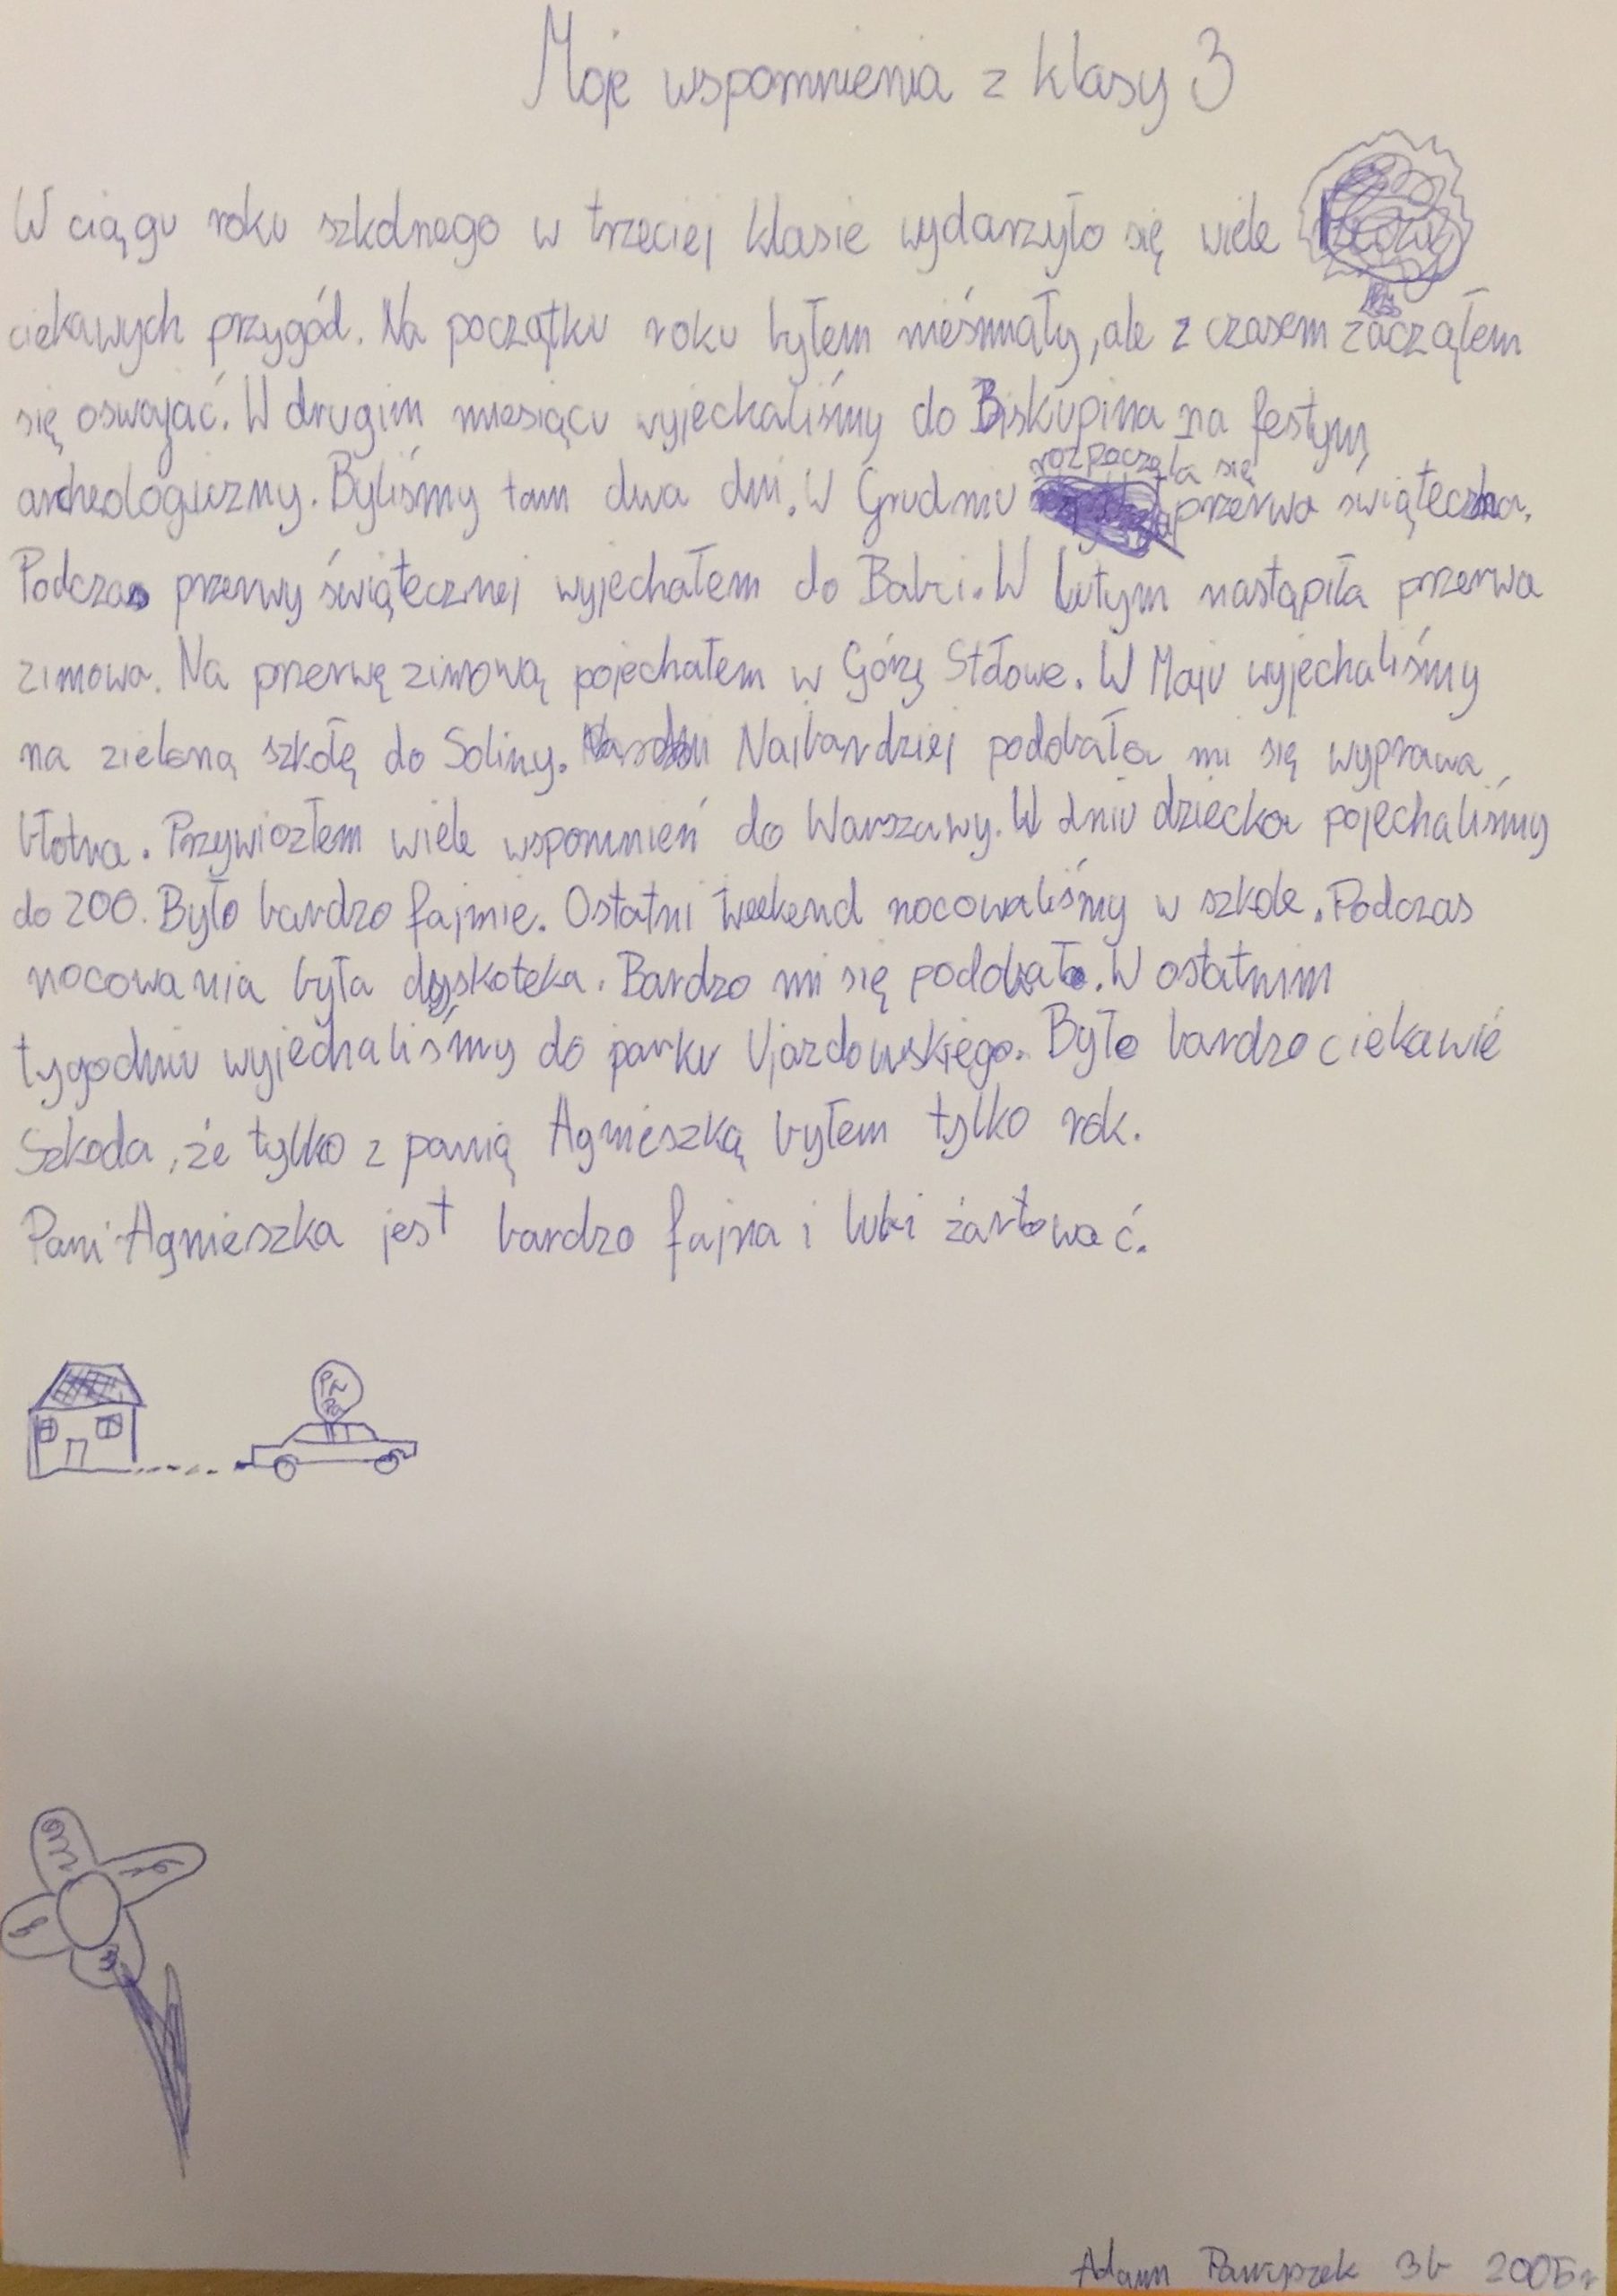 Moje wspomnienia z klasy 3
W ciągu roku szkolnego w trzeciej klasie wydarzyło się wiele
ciekawych przygód. Na początku roku byłem nieśmiały, ale z czasem zacząłem
się oswajać. W drugim miesiącu wyjechaliśmy do Biskupina na festyn
archeologiczny. Byliśmy tam dwa dni. W Grudniu rozpoczęła się przerwa świąteczna.
Podczas przerwy świątecznej wyjechałem do Babci. W lutym nastąpiła przerwa
zimowa. Na przerwę zimową pojechałem w Góry Stołowe. W Maju wyjechaliśmy
na zieloną szkołę do Soliny. Najbardziej podobała mi się wyprawa
błotna. Przywiozłem wiele wspomnień do Warszawy. W dniu dziecka pojechaliśmy
do ZOO. Było bardzo fajnie. Ostatni weekend nocowaliśmy w szkole. Podczas
nocowania była dyskoteka. Bardzo mi się podobało. W ostatnim
tygodniu wyjechaliśmy do parku Ujazdowskiego. Było bardzo ciekawie
Szkoda, że tylko z panią Agnieszką byłem tylko rok.
Pani Agnieszka jest bardzo fajna i lubi żartować.
Adam 3b 2005r